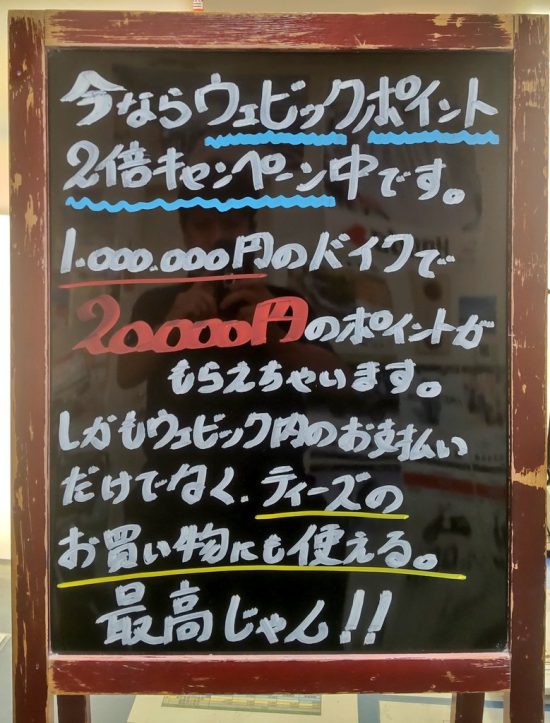 今ならウェビックポイント
2倍キャンペーン中です。
1.000.000円のバイクで
20000円のポイントが
もらえちゃいます。
しかもウェビック内のお支払い
だけでなく、ティーズの
お買い物にも使える。
最高じゃん!!